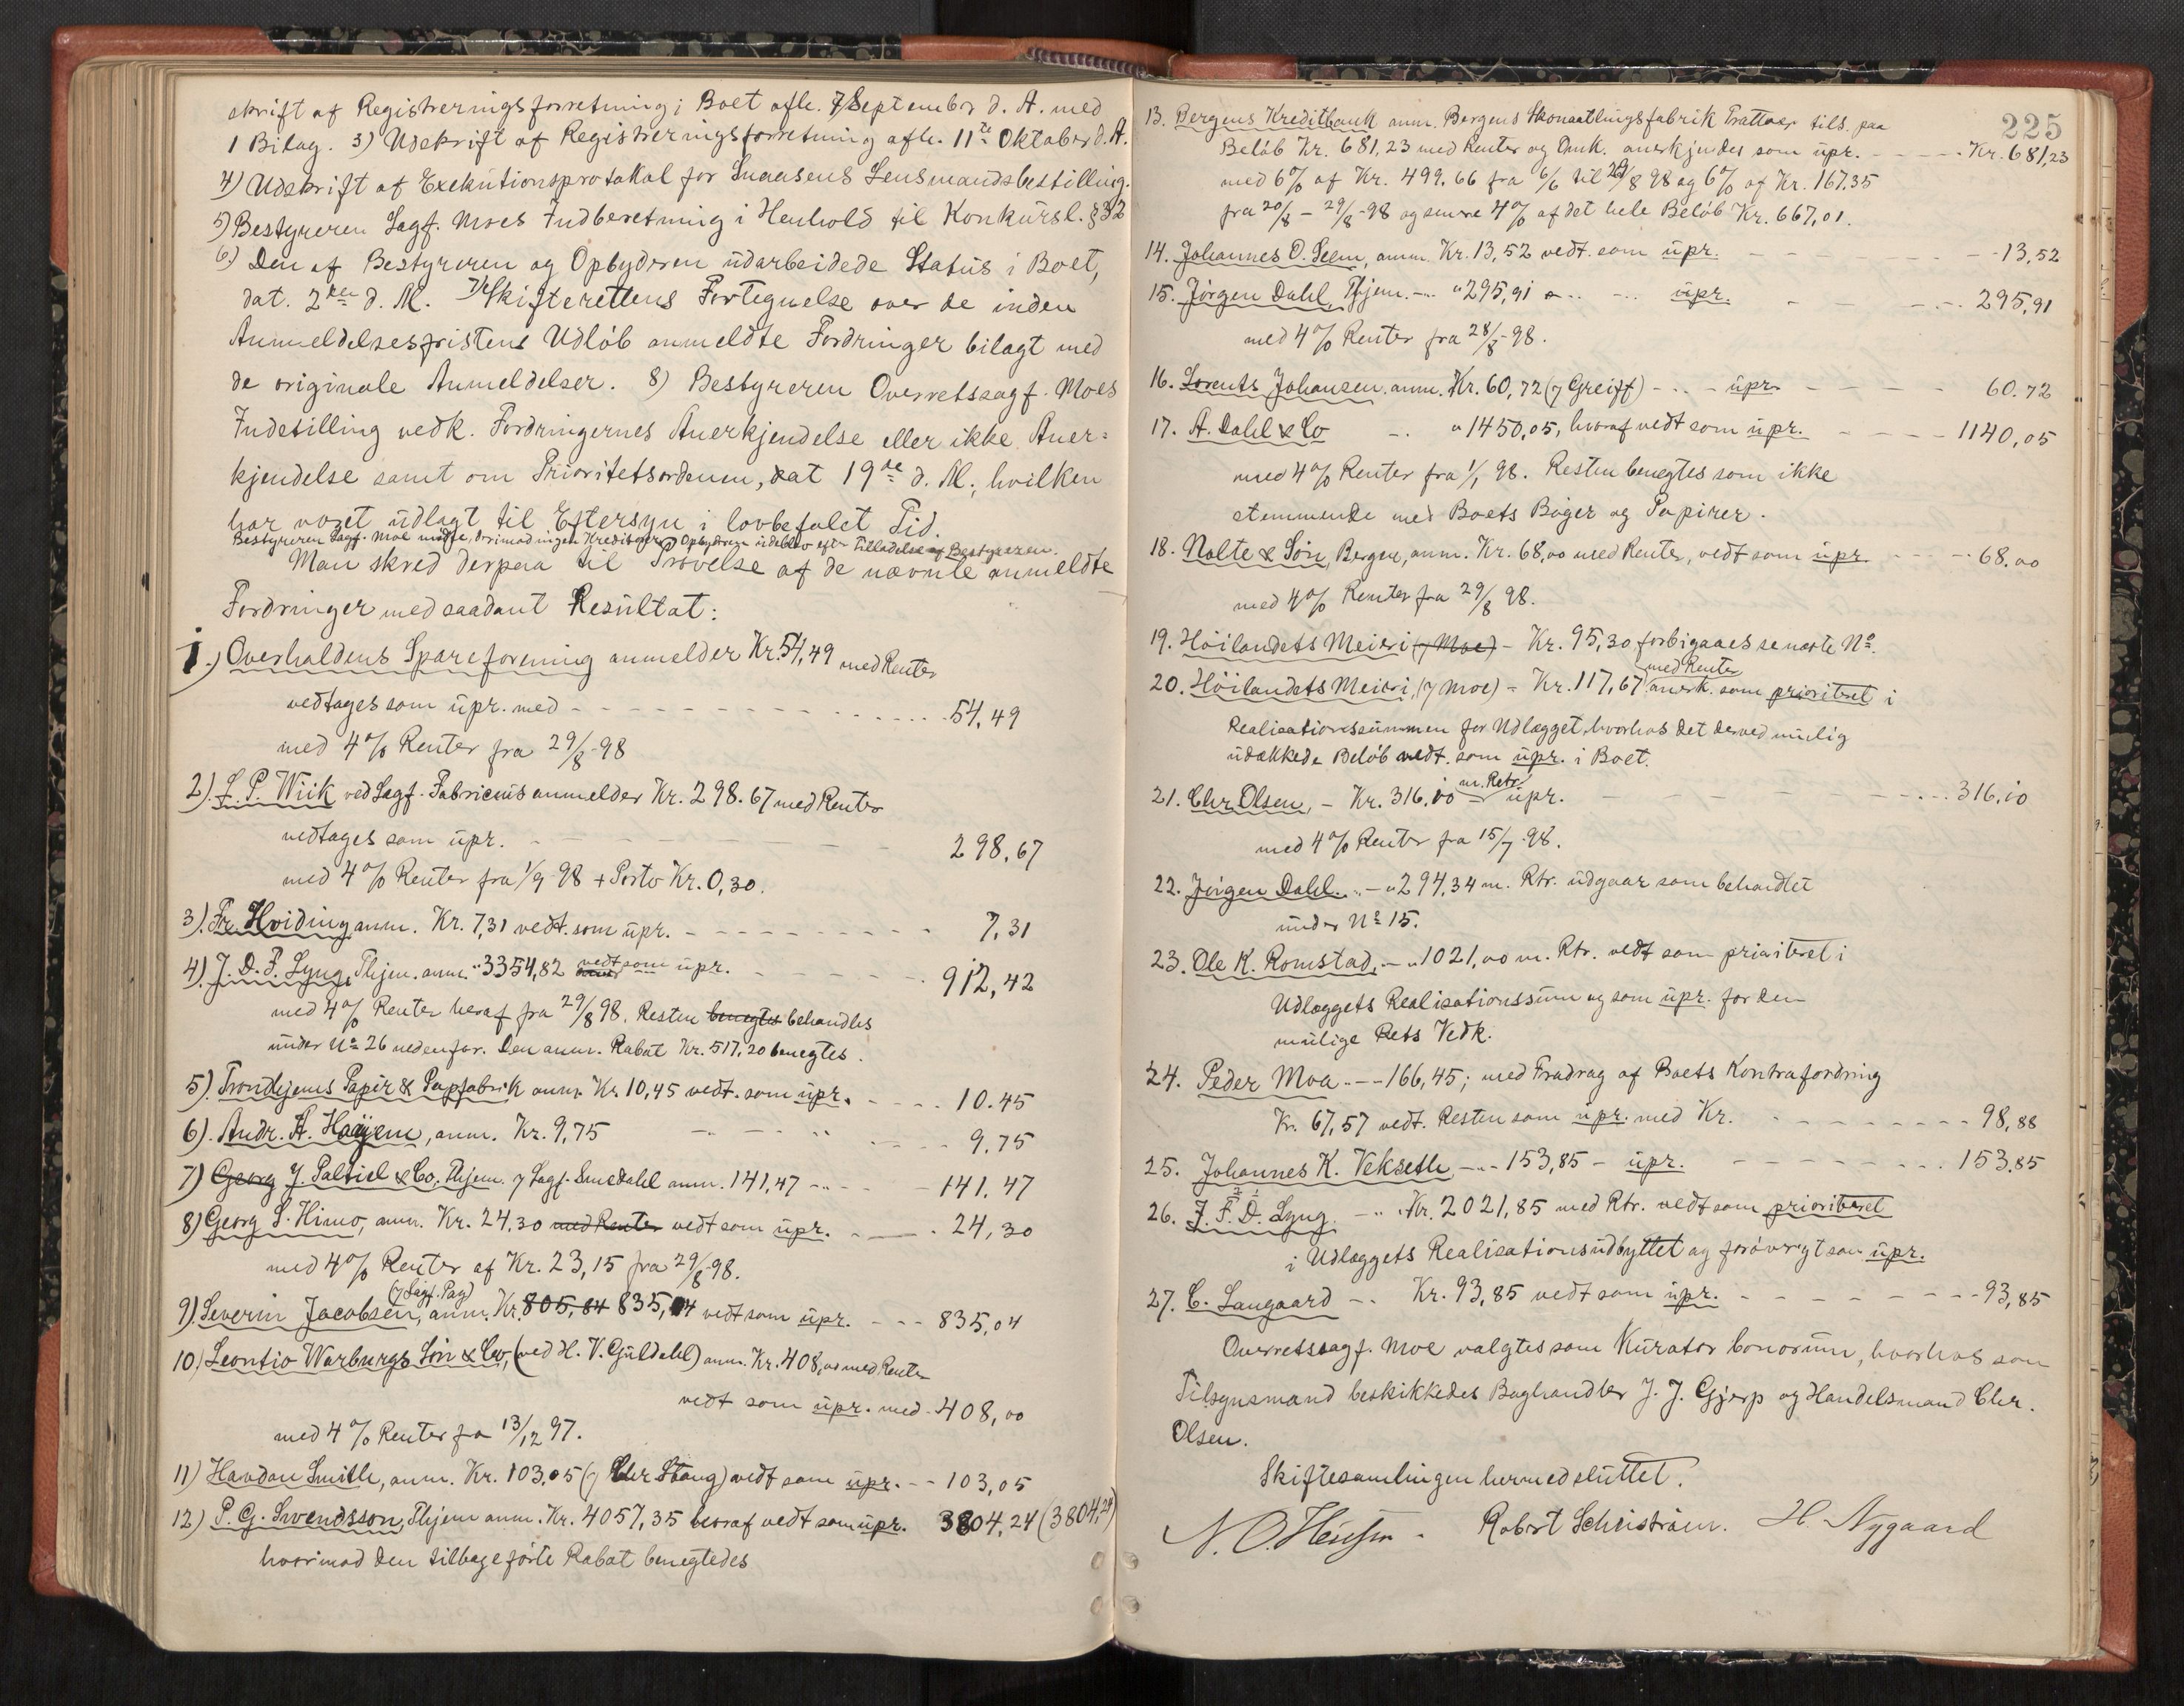 skrift af Registreringsforretning i Boet afh. 7 September d. A. med
1 Bilag. 3) Udskrift af Registreringsforretning afh. 11te Oktober d. A.
4) Udskrift af Exekutionsprotokol for Snaasens Lensmandsbestilling.
5) Bestyreren Sagf. Moes Indberetning i Henhold til Konkursl. § 32
6) Den af Bestyreren og Opbyderen udarbeidede Status i Boet,
dat. 2den d. M. 7) Skifterettens Fortegnelse over de inden
Anmeldelsesfristens Udløb anmeldte Fordringer bilagt med
de originale Anmeldelser. 8) Bestyreren Overretssagf. Moes
Indstilling vedk. Fordringernes Anerkjendelse eller ikke Aner=
kjendelse samt om Prioritetsordenen, dat 19de d. M., hvilken
har været udlagt til Eftersyn i lovbefalet Tid.
Bestyreren Sagf. Moe mødte, derimod ingen Kreditorer. Opbyderen udeblev efter Tilladelse af Bestyreren.
Man skred derpaa til Prøvelse af de nævnte anmeldte
Fordringer med saadant Resultat:
1.) Overhaldens Spareforening anmelder Kr. 54,49 med Renter
vedtages som upr. med - - - 54,49
med 4% Renter fra 29/8-98
2). L. P. Wiik ved Sagf. Fabricius anmelder Kr. 298.67 med Renter
vedtages som upr. - - - 298,67
med 4% Renter fra 1/9-98 + Porto Kr. 0,30.
3). Fr. Hviding anm. Kr. 7,31 vedt. som upr. - - - 7,31
4). J. D. F. Lyng, Thjem. anm. " 3354,82 vedt som upr. - - - 912,42
med 4% Renter heraf fra 29/8 98. Resten benegtes behandles
under No 26 nedenfor. Den anm. Rabat Kr. 517,20 benegtes.
5). Trondhjems Papir & Papfabrik anm. Kr. 10,45 vedt. som upr. - - - 10.45
6). Andr. A. Haajem, anm. Kr. 9,75 -..- .. - - - 9,75
7) Georg J. Paltiel & Co, Thjem. v Sagf. Smedahl anm. 141,47 -..- - - 141.47
8) Georg S. Himo, anm. Kr. 24,30 med Renter vedt som upr. - - - 24,30
med 4% Renter af Kr. 23,15 fra 29/8-98.
(v Sagf. Pay)
9). Severin Jacobsen, anm. Kr. 805,84 835,04 vedt som upr. - - - 835,04
10) Leontio Warburgs Søn & Co, (ved H. V. Guldahl) anm. Kr. 408,00 med Renter
vedt som upr. med - 408,00
med 4% Renter fra 13/12 97.
11) Havdan Smith, anm. Kr. 103,05 (v Chr Stang) vedt som upr. - - 103,05
12) P. G. Svendsson, Thjem anm. Kr. 4057,35 hvoraf vedt som upr. 3804,24 (3804,24)
hvorimod den tilbageførte Rabat benegtedes
225
13. Bergens Kreditbank anm. Bergens fabrik Trattver tils. paa
Beløb Kr. 681,23 med Renter og Omk. anerkjendes som upr. - - - Kr. 681,23
med 6% af Kr. 499.66 fra 6/6 til 29/8 98 og 6% af Kr. 167.35
fra 20/8 - 29/8-98 og senere 4% af det hele Beløb Kr. 667,01.
14. Johannes O. Seem, anm. Kr. 13,52 vedt. som upr. - - - 13,52
15. Jørgen Dahl, Thjem. -..- " 295,91 -..- -..- upr. - - - 295,91
med 4% Renter fra 28/8-98.
16. Lorents Johansen. anm. Kr. 60,72 (v Greiff) -..- upr. - - - 60.72
17. A. Dahl & Co -.. " 1450,05, hvoraf vedt som upr. - - - 1140,05
med 4% Renter fra 1/1 98. Resten benegtes som ikke
stemmende med Boets Bøger og Papirer.
18. Nolte & Søn, Bergen, anm. Kr. 68,00 med Renter, vedt som upr - - - 68.00
med 4% Renter fra 29/8 98.
19. Høilandets Meieri (v Moe) - Kr. 95,30 forbigaaes se næste No.
20. Høilandets Meieri, (v Moe) - Kr. 117,67 med Renter anerk. som prioriteret i
Realisationssummen for Udlægget, hvorhos det derved mulig
udækkede Beløb vedt. som upr. i Boet.
21. Chr. Olsen, - Kr. 316.10 m. Retr. upr. - - - 316,10
med 4% Renter fra 15/7-98.
22. Jørgen Dahl. -..- " 294,34 m. Rtr. udgaar som behandlet
under No 15.
23. Ole K. Romstad, -..- 1021,00 m. Rtr. vedt som prioriteret i
Udlæggets Realisationssum og som upr. for den
mulige Rests Vedk.
24. Peder Moa -..- 166,45; med Fradrag af Boets Kontrafordring
Kr. 67,57 vedt. Resten som upr. med Kr. - - - 98,88
25. Johannes K. Vekseth -..- 153,85 - upr. - - - 153,85
26. J. F. D. Lyng. -.. Kr. 2021,85 med Rtr. vedt som prioriteret
i Udlæggets Realisationsudbyttet og forøvrigt som upr.
27. C. Laugaard -.. Kr. 93,85 vedt som upr. - - - 93,85
Overretssagf. Moe valgtes som Kurator bonorum, hvorhos som
Tilsynsmænd beskikkedes Boghandler J. J. Gjerp og Handelsmand Chr.
Olsen.
Skiftesamlingen hermed sluttet.
Robert Schiström. H. Nygaard